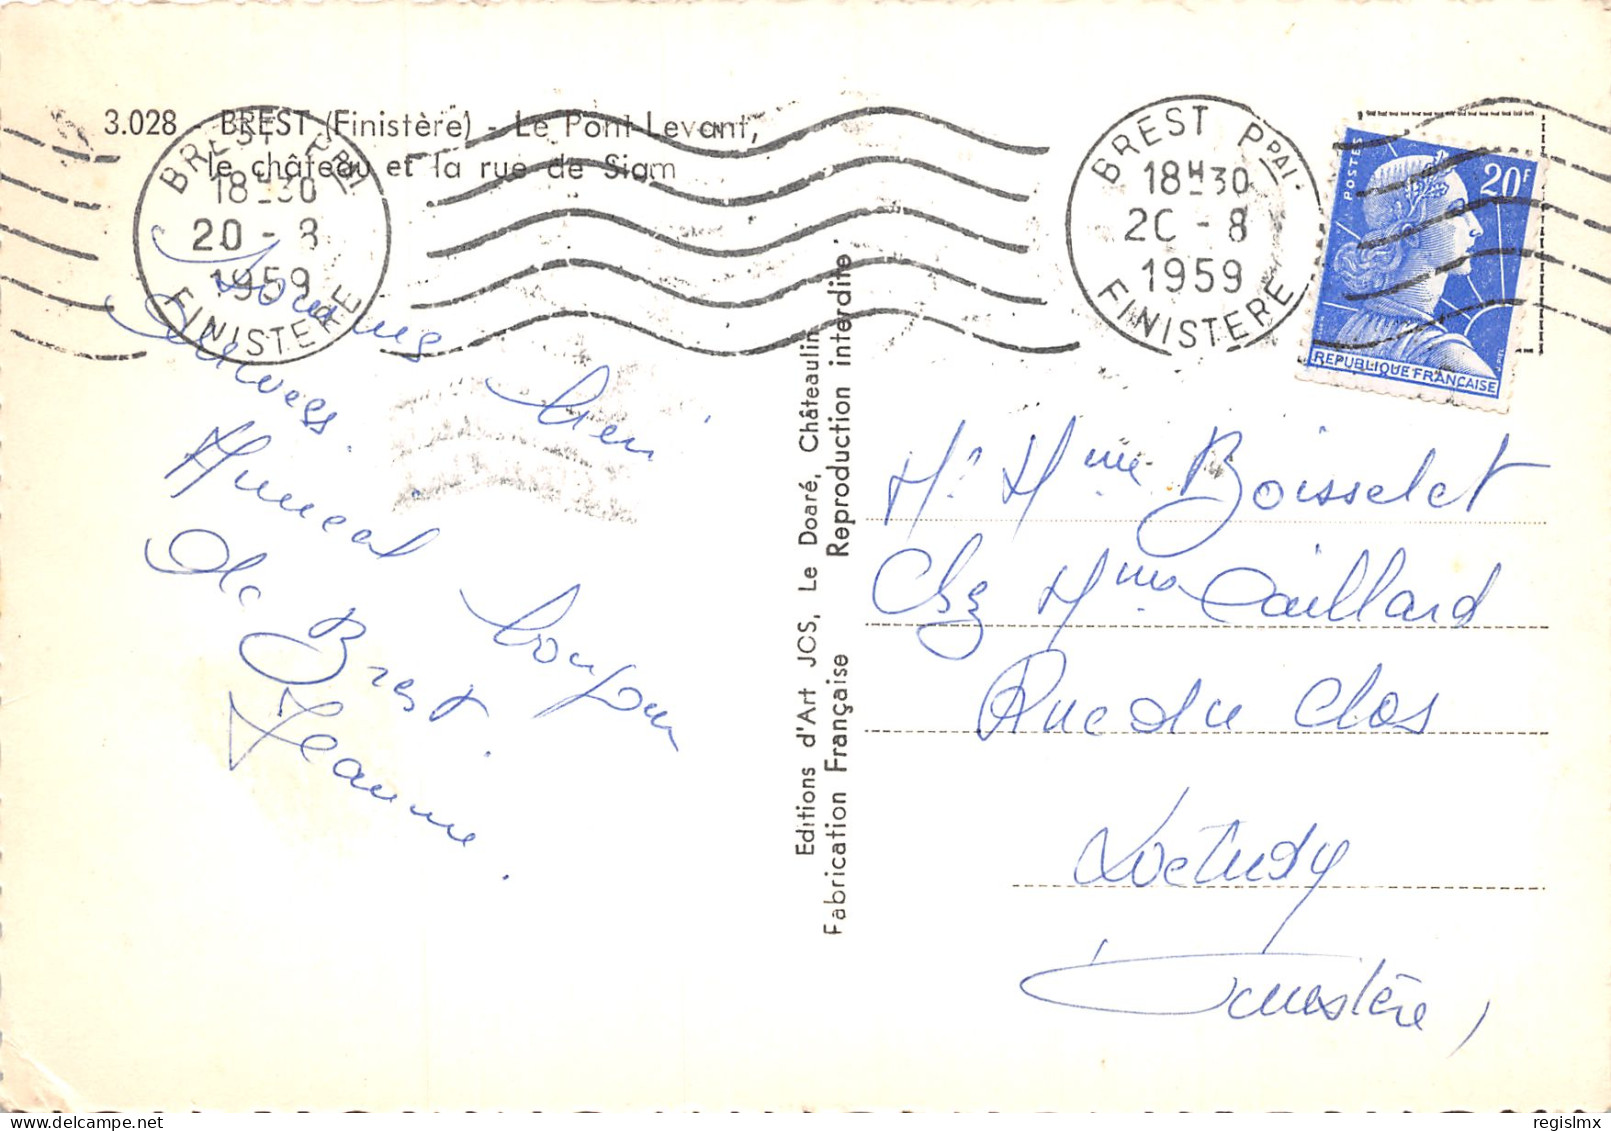 3.028 - BREST (Finistère) - Le Pont Levant,
le château et la rue de Siam
BREST PPAL
18H30
20 - 8
1959
FINISTERE
BREST PPAL
18H30
20 - 8
1959
FINISTERE
POSTES
20F
REPUBLIQUE FRANCAISE
Sommes bien
arrivés.
Amical bonjour
de Brest.
Jeanne.
Editions d'Art JOS, Le Doaré, Châteaulin
Fabrication Française Reproduction interdite
Mr Mme Boisselet
Chez Mme Caillard
Rue du Clos
Loctudy
Finistère,
regislmx